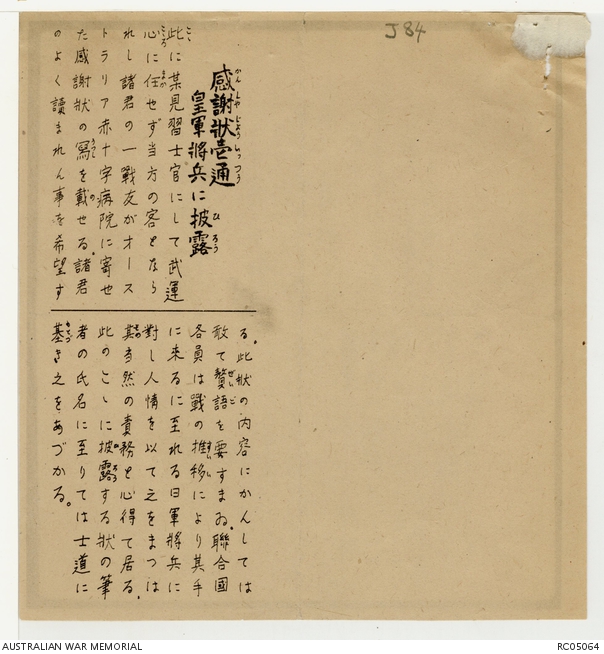 J84
感謝狀壱通
皇軍將兵に披露
此に某見習士官にして武運
心に任せず当方の客となら
れし諸君の一戰友がオース
トラリア赤十字病院に寄せ
た感謝狀の寫を載せる。諸君
のよく讀まれん事を希望す
る。此狀の内容にかんしては
敢て贅語を要すまゐ。聯合國
各員は戰の推移により其手
に来るに至れる日軍將兵に
對し人情を以て之をまつは
其当然の責務と心得て居る。
此のこゝに披露する狀の筆
者の氏名に至りては士道に
基き之をあづかる。
AUSTRALIAN WAR MEMORIAL
RC05064